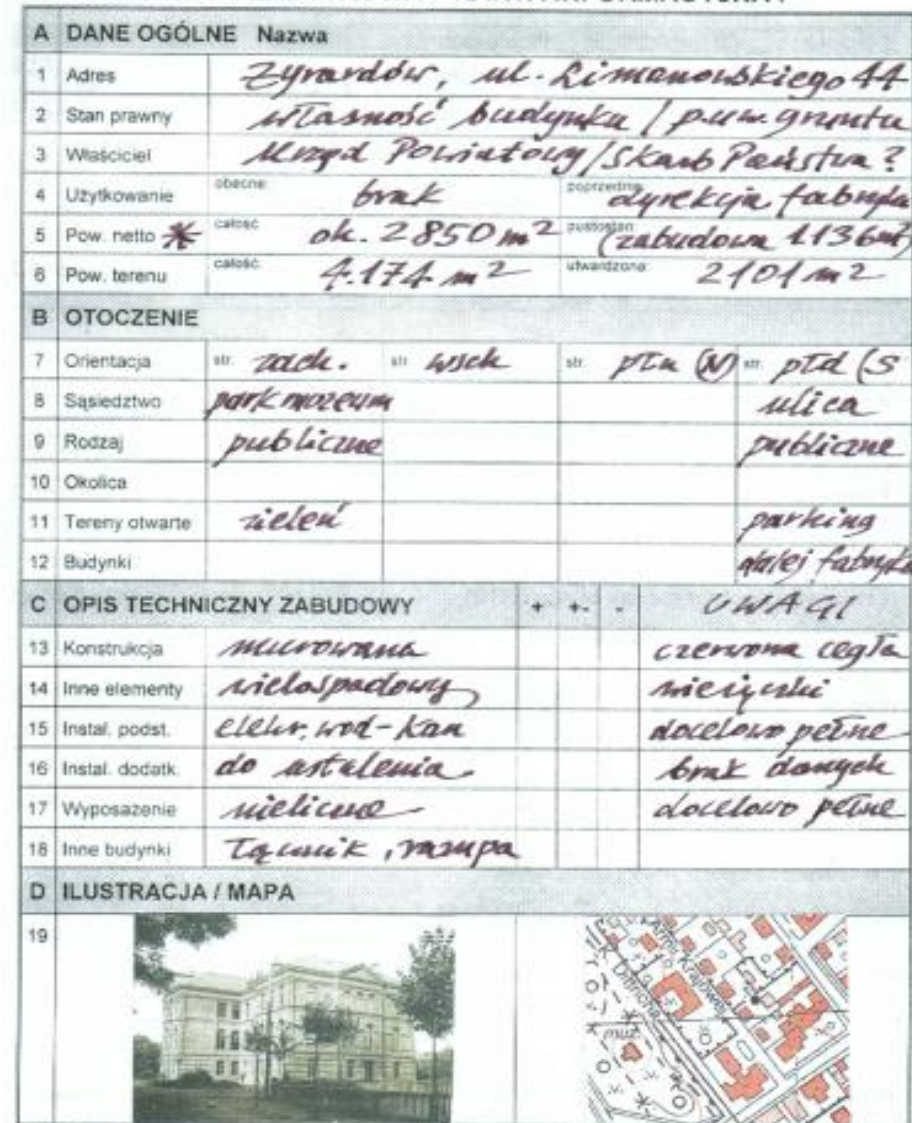 A DANE OGÓLNE Nazwa
1 Adres Żyrardów, ul. Limanowskiego 44
2 Stan prawny własność budynku / p.u.w. gruntu
3 Właściciel Urząd Powiatowy / Skarb Państwa ?
4 Użytkowanie obecne: brak poprzednie: dyrekcja fabryki
5 Pow. netto * całość: ok. 2850 m2 pustostan: (zabudowa 1136 m2)
6 Pow. terenu całość: 4.174 m2 utwardzona: 2101 m2
B OTOCZENIE
7 Orientacja str. zach. str. wsch str. płn (N) str. płd (S
8 Sąsiedztwo park muzeum ulica
9 Rodzaj publiczne publiczne
10 Okolica
11 Tereny otwarte zieleń parking
12 Budynki dalej fabryka
C OPIS TECHNICZNY ZABUDOWY + +- - UWAGI
13 Konstrukcja murowana czerwona cegła
14 Inne elementy wielospadowy
15 Instal. podst. elektr. wod-kan docelowo pełne
16 Instal. dodatk. do ustalenia brak danych
17 Wyposażenie nieliczne docelowo pełne
18 Inne budynki łącznik, rampa
D ILUSTRACJA / MAPA
19
Armii Krajowej
Dittricha
muz.